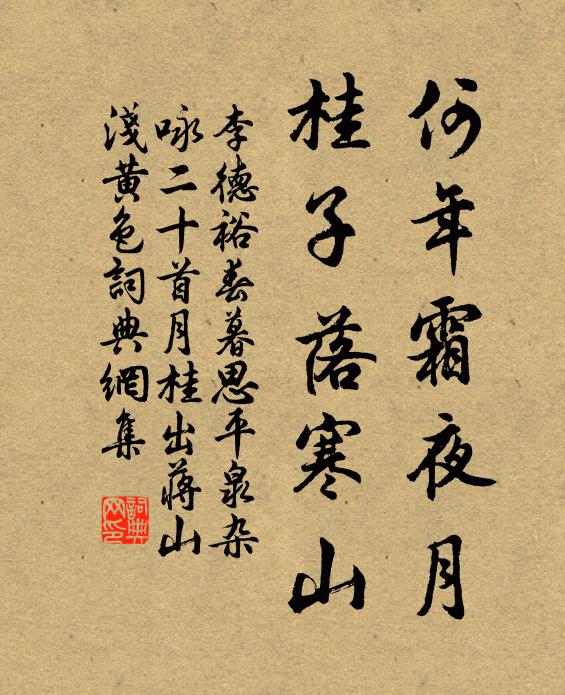 何年霜夜月
桂子落寒山
李德裕春暮思平泉杂
咏二十首月桂出蔣山
淺黄色詞典網集
詞典
网印